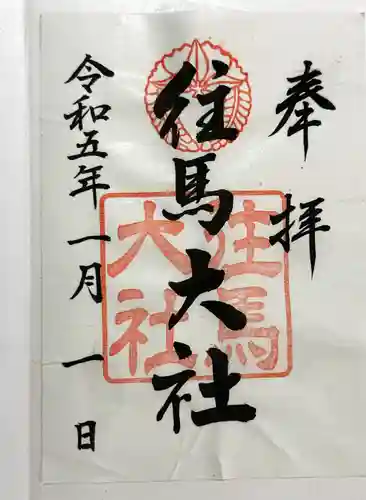 奉拝
往馬大社
往馬大社
令和五年一月一日